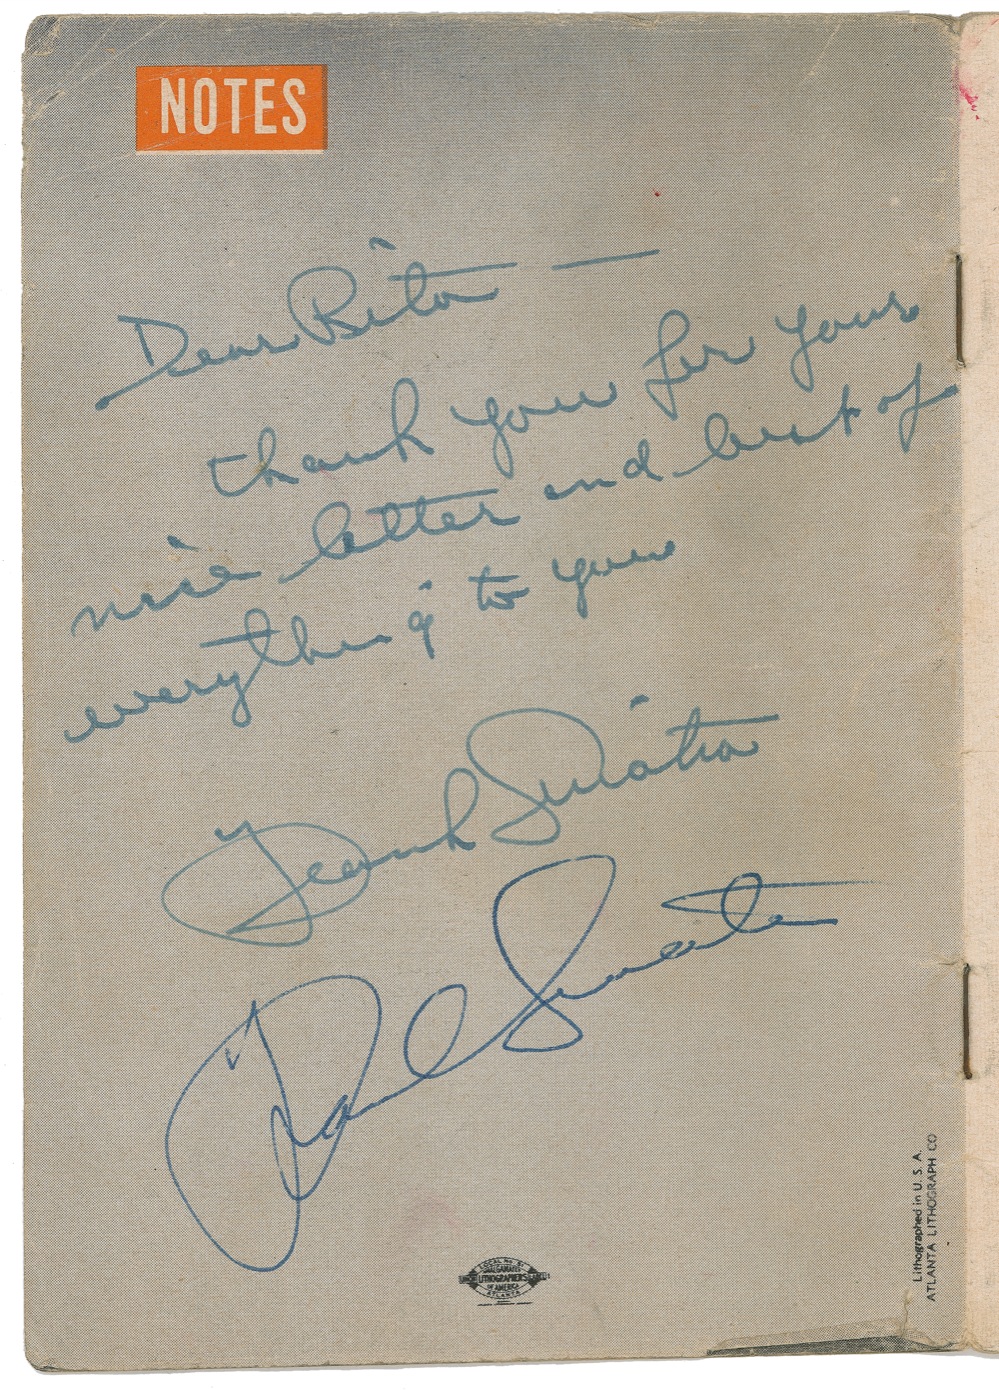 NOTES
Dear Rita —
thank you for your
nice letter and best of
everything to you
Frank Sinatra
Frank Sinatra
LOCAL No. 
AMALGAMATED
LITHOGRAPHERS
OF AMERICA
ATLANTA
Lithographed in U. S. A.
ATLANTA LITHOGRAPH CO